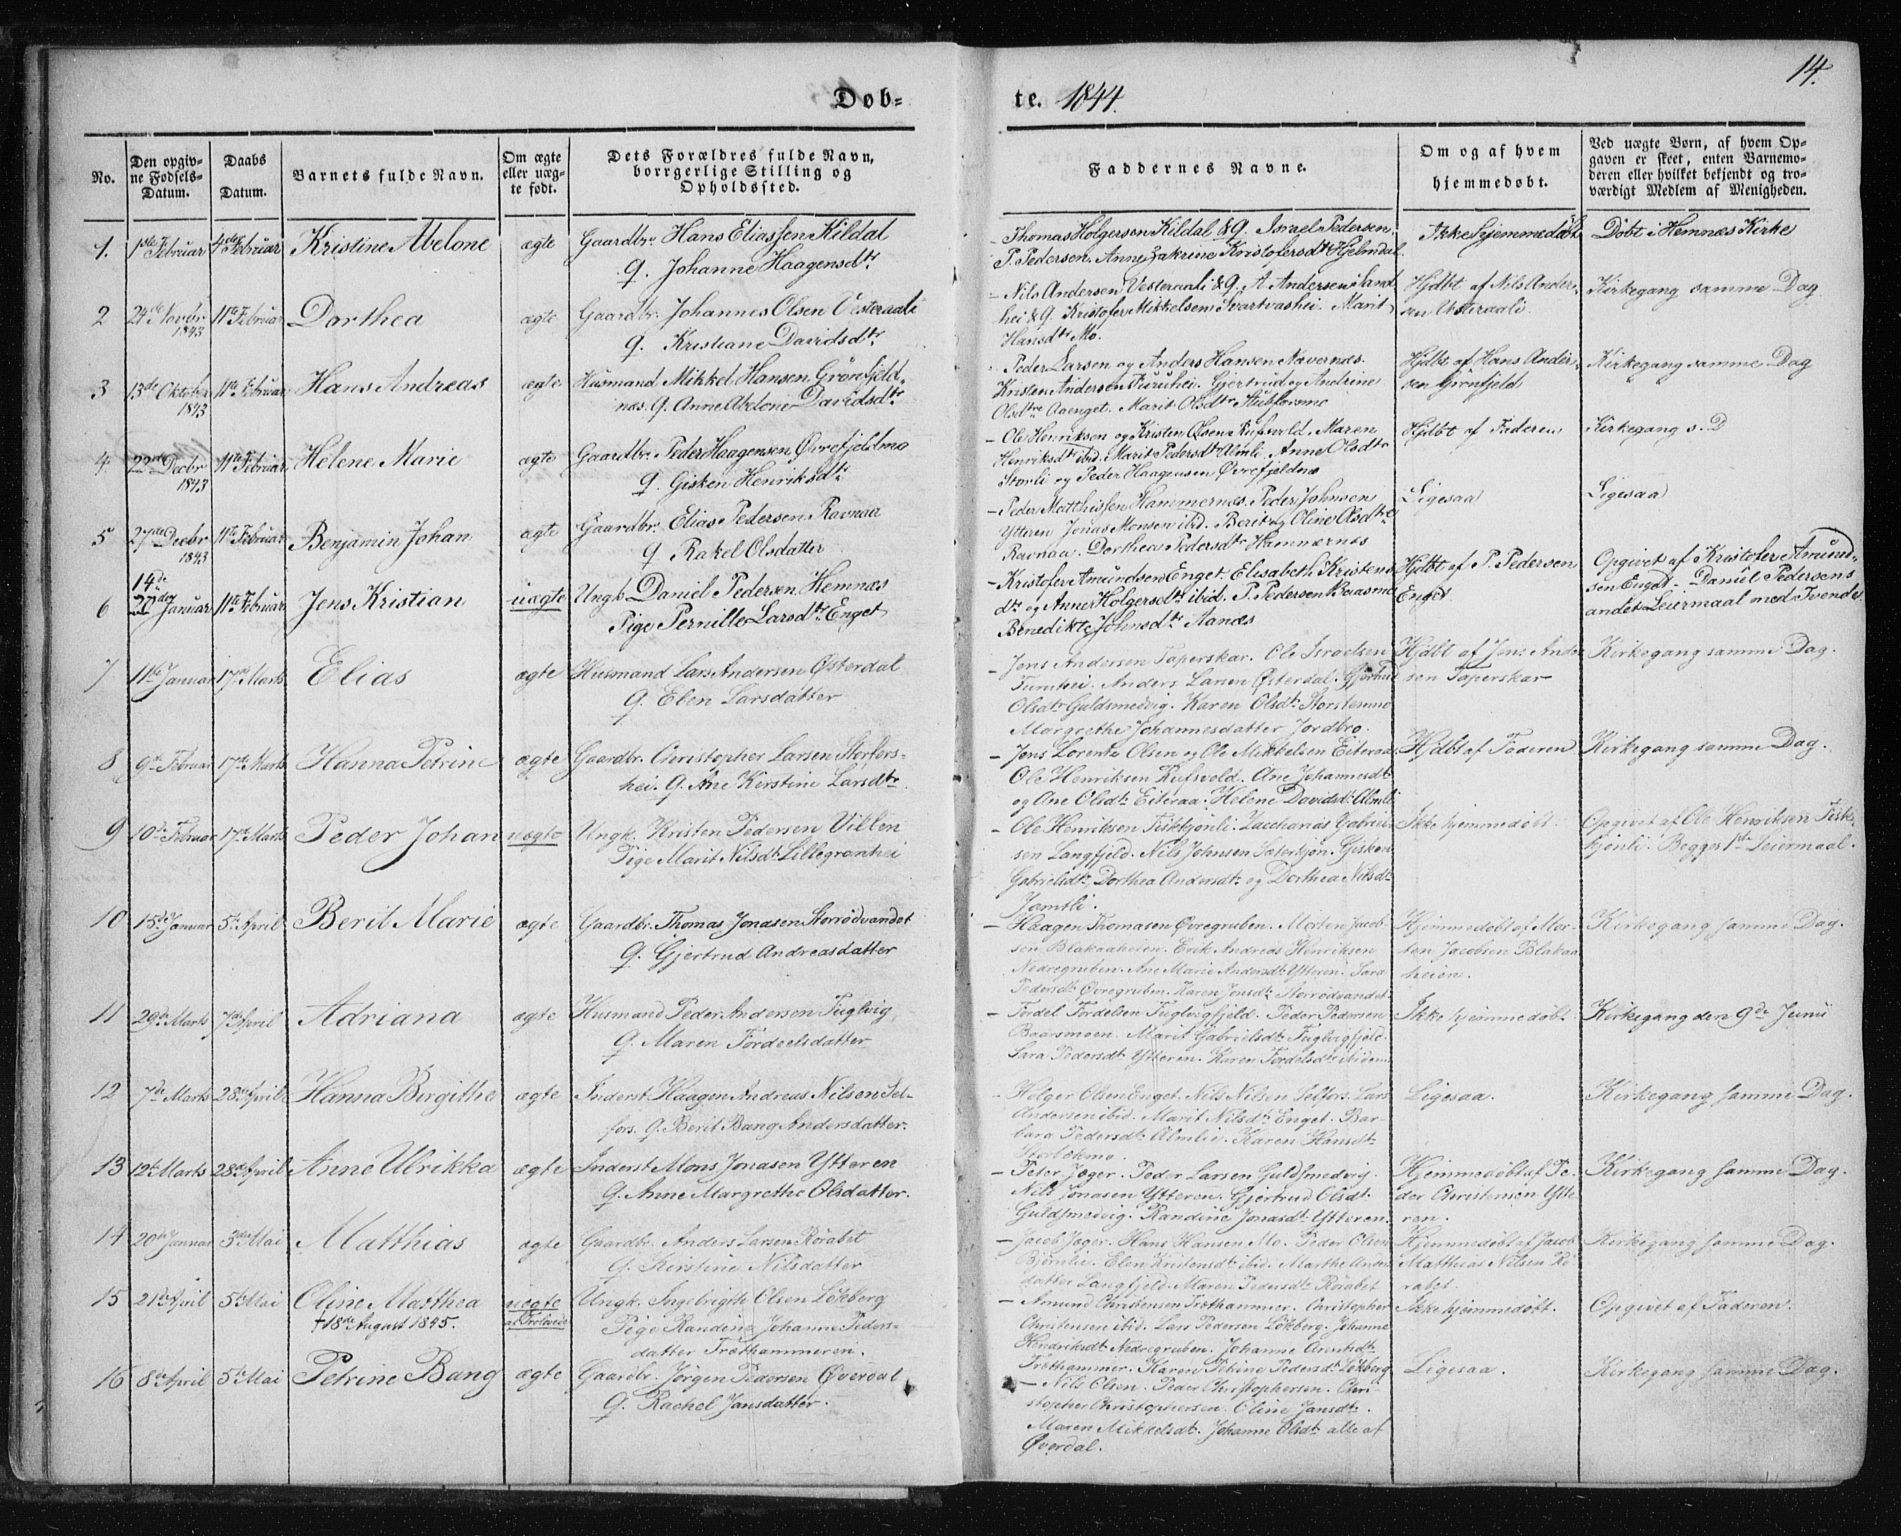 14.
Døb-
te. 1844.
No.
Den opgiv-
ne Fødsels-
Datum.
Daabs
Datum.
Barnets fulde Navn.
Om ægte
eller uæg-
te født.
Dets Forældres fulde Navn,
borrgerlige Stilling og
Opholdssted.
Faddernes Navne.
Om og af hvem
hjemmedøbt.
Ved uægte Børn, af hvem Op-
gaven er skeet, enten Barnemo-
deren eller hvilket bekjendt og tro-
værdigt Medlem af Menigheden.
1. 1ste Februar 4de Februar Kristine Abelone ægte Gaardbr. Hans Eliassen Kildal
q. Johanne Haagensdtr
- Thomas Holgersen Kildal & q. Israel Pedersen.
P. Pedersen. Anne Zakrine Kristofersdtr Hjelmdal
Ikke hjemmedøbt
Døbt i Hemnæs Kirke
2 24de Novbr 1843 11te Februar Dorthea ægte Gaardbr. Johannes Olsen Vesteraali
q. Kristiane Davidsdtr
- Nils Andersen Vesteraali & q. A. Andersen
hei & q. Kristofer Mikkelsen Svartvashei. Marit
Hansdtr Mo.
Hjdbt af Nils Ander-
sen Vesteraali
Kirkegang samme Dag
3 13de Oktober 1843 11te Februar Hans Andreas ægte Husmand Mikkel Hansen Grönfjeld-
næs. q. Anne Abelone Davidsdtr
- Peder Larsen og Anders Hansen Navernæs.
Kristen Andersen Furuhei. Gjertrud og Andrine
Olsdtre Avenget. Marit Olsdtr Stubforsmo
Hjdbt af Hans Ander-
sen Grönfjeld
Kirkegang samme Dag
4. 22de Decbr 1843 11te Februar Helene Marie ægte Gaardbr. Peder Haagensen Øvrefjeldmo
q. Gisken Henriksdtr
- Ole Henriksen og Kristen Olsen Rufsvold. Maren
Henriksdtr ibid. Marit Pedersdtr Almli. Anne Olsdtr
Storli og Peder Haagensen Øvrefjeldmo
Hjdbt af Faderen
Kirkegang s. D
5 27de Decbr 1843 11te Februar Benjamin Johan ægte Gaardbr. Elias Pedersen Ravnaa
q Rakel Olsdatter
- Peder Matthissen Hammernæs. Peder Johnsen
Ytteren Jonas Monsen ibid. Berit og Oline Olsdtre
Ravnaa. Dorthea Pedersdtr Hammernæs
Ligesaa
Ligesaa
6 14de Januar 11te Februar Jens Kristian uægte Ungk. Daniel Pedersen Hemnæs
Pige Pernille Larsdtr Enget
- Kristofer Amundsen Enget. Elisabeth Kristens
dtr og Anne Holgersdtr ibid. P. Pedersen Braasmo
Benedikte Johnsdtr Aanæs
Hjdbt af P. Pedersen
Enget
Opgivet af Kristofer Amund-
sen Enget - Daniel Pedersens
andet Leiermaal med Tvende
7 11te Januar 17de Marts Elias ægte Husmand Lars Andersen Østerdal
q. Elen Larsdatter
- Jens Andersen Taperskar. Ole Israelsen
Furuhei. Anders Larsen Østerdal. Gjertrud
Olsdtr Guldsmedvig. Karen Olsdtr Storstenmo
Margrethe Johannesdatter Jordbro.
Hjdbt af Jens Ander-
sen Taperskar
Kirkegang samme Dag.
8 9de Februar 17de Marts Hanna Petrine ægte Gaardbr. Christopher Larsen Storfors-
hei. q. Ane Kirstine Larsdtr.
- Jens Lorentz Olsen og Ole Mikkelsen Eiteraa.
Ole Henriksen Rufsvold. Ane Johannesdtr
og Ane Olsdtr Eiteraa. Helene Davidsdtr Almli
Hjdbt af Faderen
Kirkegang samme Dag.
9 10de Februar 17de Marts Peder Johan uægte Ungk. Kristen Pedersen Villen
Pige Marit Nilsdtr Lillegrønhei
- Ole Henriksen Fiskkjønli. Zacharias Gabriel-
sen Langfjeld. Nils Johnsen Sæterkjøn. Gisken
Gabrielsdtr, Dorthea Andersdtr og Dorthea Nilsdtr
Jamtli.
Ikke hjemmedøbt.
Opgivet af Ole Henriksen Fisk-
kjønli. Begges 1ste Leiermaal.
10 15de Januar 5te April Berit Marie ægte Gaardbr. Thomas Jonasen Storrødvandet
q. Gjertrud Andreasdatter
- Haagen Thomasen Øvregruben. Morten Jacob-
sen Blakaaheien. Erik Andreas Henriksen
Nedregruben. Ane Marie Andersdtr Ytteren. Sara
Pedersdtr Øvregruben. Karen Jensdtr Storrødvandet.
Hjemmedøbt af Mor-
ten Jacobsen Blakaa-
heien.
Kirkegang samme Dag.
11 29de Marts 7de April Adriana ægte Husmand Peder Andersen Fuglvig,
q. Maren Fordeelsdatter
- Fordel Fordelsen Fuglvigfjeld. Peder Pedersen
Braasmoen. Marit Gabrielsdtr Fuglvigfjeld.
Sara Pedersdtr Ytteren. Karen Fordelsdtr ibidem
Ikke hjemmedøbt.
Kirkegang den 9de Junii
12 7de Marts 28de April Hanna Birgithe ægte Inderst Haagen Andreas Nilsen Sel-
fors. q. Berit Bang Andersdatter.
- Holger Olsen Enget. Nils Nilsen Selfors. Lars
Andersen ibid. Marit Nilsdtr Enget. Bar-
bara Pedersdtr Almlie. Karen Hansdtr
Ligesaa.
Kirkegang samme Dag.
13 12te Marts 28de April Anne Ulrikka ægte Inderst Mons Jonasen Ytteren
q. Anne Margrethe Olsdatter.
- Peter Jæger. Peder Larsen Guldsmedvig.
Nils Jonasen Ytteren. Gjertrud Olsdtr
Guldsmedvig. Randine Jonasdtr Ytteren.
Hjemmedøbt af Pe-
der Christensen Ytte-
ren.
Kirkegang samme Dag.
14 20de Januar 3die Mai Matthias ægte Gaardbr. Anders Larsen Rørabet
q. Kirstine Nilsdatter
- Jacob Jæger. Hans Hansen Mo. Peder Olsen
Bjørnlie. Elen Kristensdtr ibid. Marthe Anders-
datter Langfjeld. Maren Pedersdtr Rørabet
Hjemmedøbt af Jacob
Matthias Nilsen Rø-
rabet.
Kirkegang samme Dag.
15 21de April 5te Mai Oline Marthea
† 18de August 1845.
uægte
af Trolovede
Ungk. Ingebrigth Olsen Løkberg
Pige Randine Johanne Peders-
datter Træthammeren.
- Amund Christensen Træthammer. Christopher
Christensen ibid. Lars Pedersen Løkberg. Johanne
Henriksdtr Nedregruben. Johanne Arentsdtr
Træthammer. Karen Petrine Pedersdtr Løkberg
Ikke hjemmedøbt.
Opgivet af Faderen.
16 8de April 5te Mai Petrine Bang ægte Gaardbr. Jørgen Pedersen Øverdal
q. Rachel Jansdatter.
- Nils Olsen. Peder Christophersen. Chri-
stopher Christophersen. Oline Jansdtr.
Maren Mikkelsdtr. Johanne Olsdtr alle af
Øverdal.
Ligesaa.
Kirkegang samme Dag.